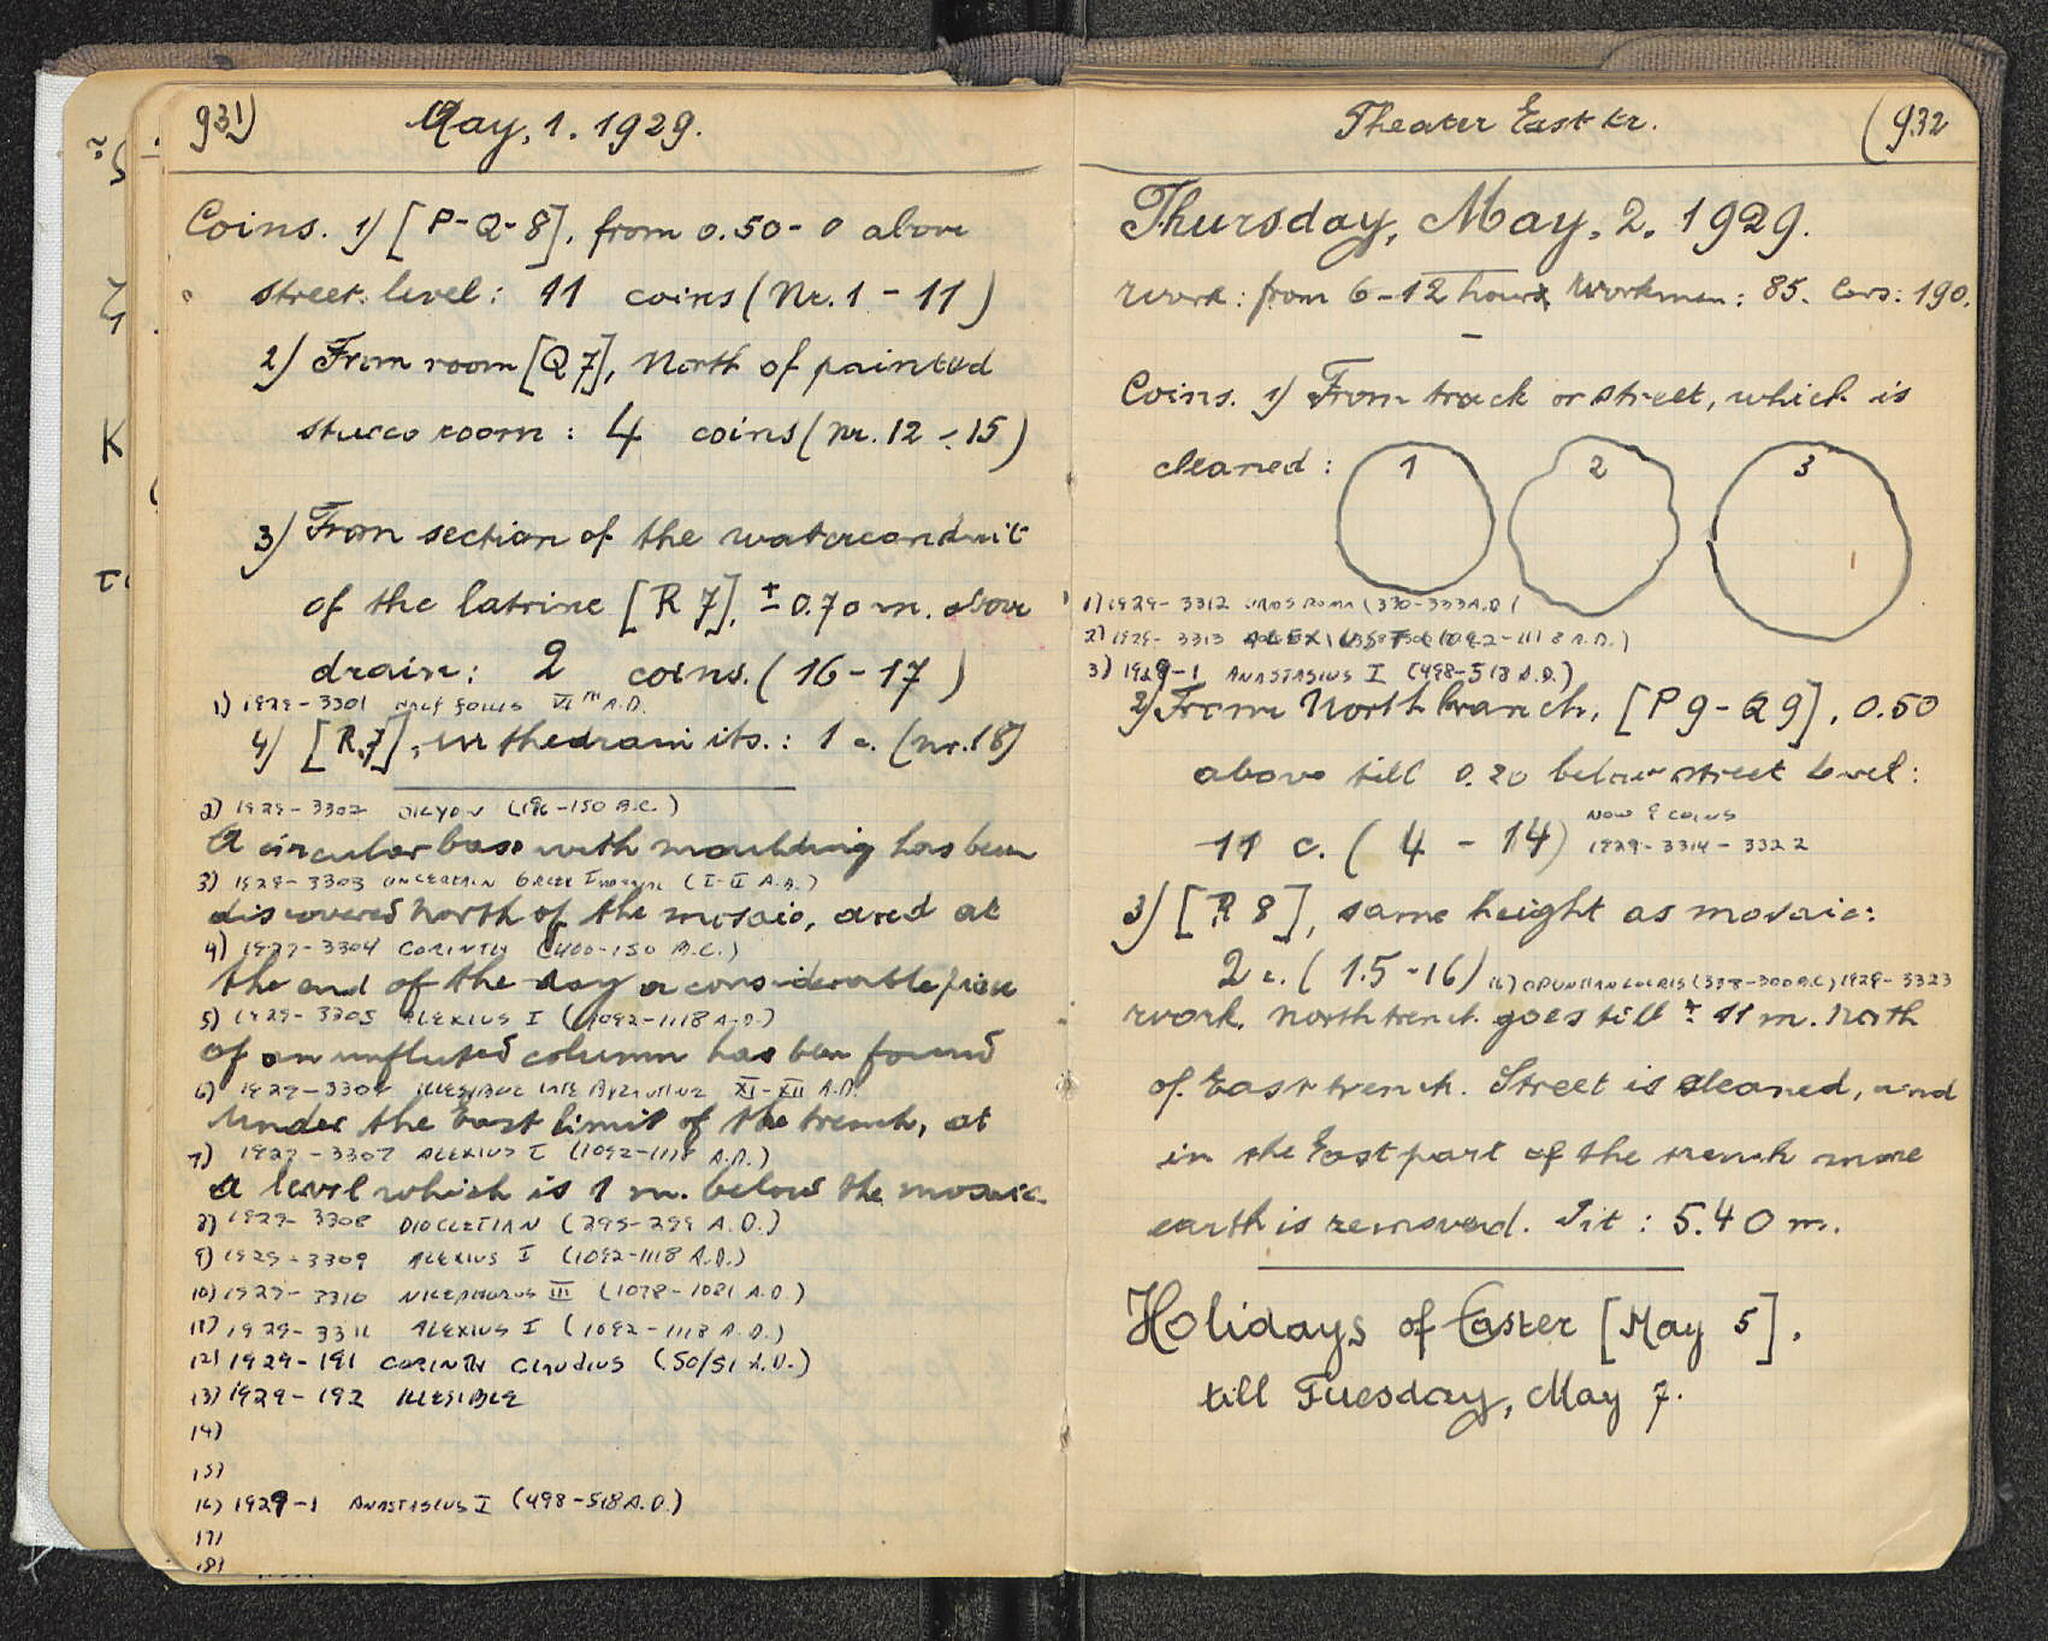 931)
May, 1. 1929.
Coins. 1) [P-Q-8], from 0.50 - 0 above
street. level: 11 coins (Nr. 1 - 11)
2) From room [Q 7], North of painted
stucco room: 4 coins (Nr. 12 - 15)
3) From section of the waterconduit
of the latrine [R 7], ± 0.70 m. above
drain: 2 coins. (16 - 17)
1) 1929 - 3301 HALF FOLLIS VI TH A.D.
4) [R.7], in the drain its.: 1 c. (nr. 18)
2) 1929 - 3302 SICYON (196-150 B.C.)
A circular base with moulding has been
3) 1929 - 3303 UNCERTAIN GREEK IMPERIAL (I-II A.D.)
discovered North of the mosaic, and at
4) 1929 - 3304 CORINTH (400-150 B.C.)
the end of the day a considerable piece
5) 1929 - 3305 ALEXIUS I (1092-1118 A.D.)
of an unfluted column has been found
6) 1929 - 3306 ILLEGIBLE LATE BYZANTINE XI-XII A.D.
under the East limit of the trench, at
7) 1929 - 3307 ALEXIUS I (1092-1118 A.D.)
a level which is 1 m. below the mosaic.
8) 1929 - 3308 DIOCLETIAN (295-299 A.D.)
9) 1929 - 3309 ALEXIUS I (1092-1118 A.D.)
10) 1929 - 3310 NICEPHORUS III (1078-1081 A.D.)
11) 1929 - 3311 ALEXIUS I (1092-1118 A.D.)
12) 1929 - 191 CORINTH CLAUDIUS (50/51 A.D.)
13) 1929 - 192 ILLEGIBLE
14)
15)
16) 1929 - 1 ANASTASIUS I (498-518 A.D.)
17)
18)
Theater East tr.
(932
Thursday, May. 2. 1929.
Work: from 6-12 hours Workmen: 85. Cars: 190.
Coins. 1) From track or street, which is
cleaned: 1 2 3
1) 1929 - 3312 URBS ROMA (330-333 A.D.)
2) 1929 - 3313 (1092-1118 A.D.)
3) 1929 - 1 ANASTASIUS I (498-518 A.D.)
2) From North branch, [P 9 - Q 9], 0.50
above till 0.20 below street level:
11 c. (4 - 14) NOW 9 COINS
1929 - 3314 - 3322
3) [R 8], same height as mosaic:
2 c. (15 - 16) 16) OPUNTIAN LOCRIS (338-300 B.C.) 1929 - 3323
Work. North trench goes till ± 11 m. North
of East trench. Street is cleaned, and
in the East part of the trench more
earth is removed. Pit: 5.40 m.
Holidays of Easter [May 5].
till Tuesday, May 7.